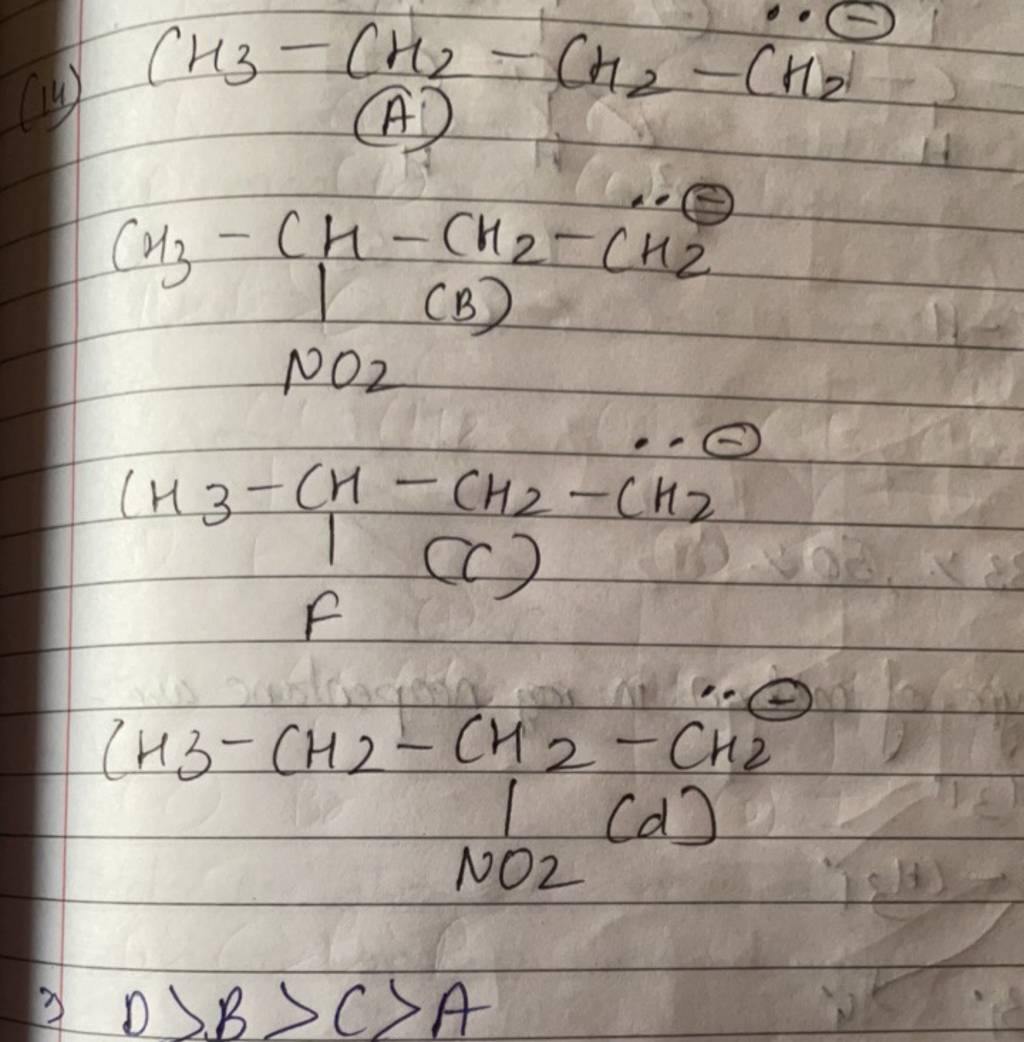 (14) CH3 – CH2 – CH2 – CH2
.. ⊖
(A)
.. ⊖
CH3 – CH – CH2 – CH2
| (B)
NO2
.. ⊖
CH3 – CH – CH2 – CH2
| (C)
F
.. ⊖
CH3 – CH2 – CH2 – CH2
| (d)
NO2
D > B > C > A